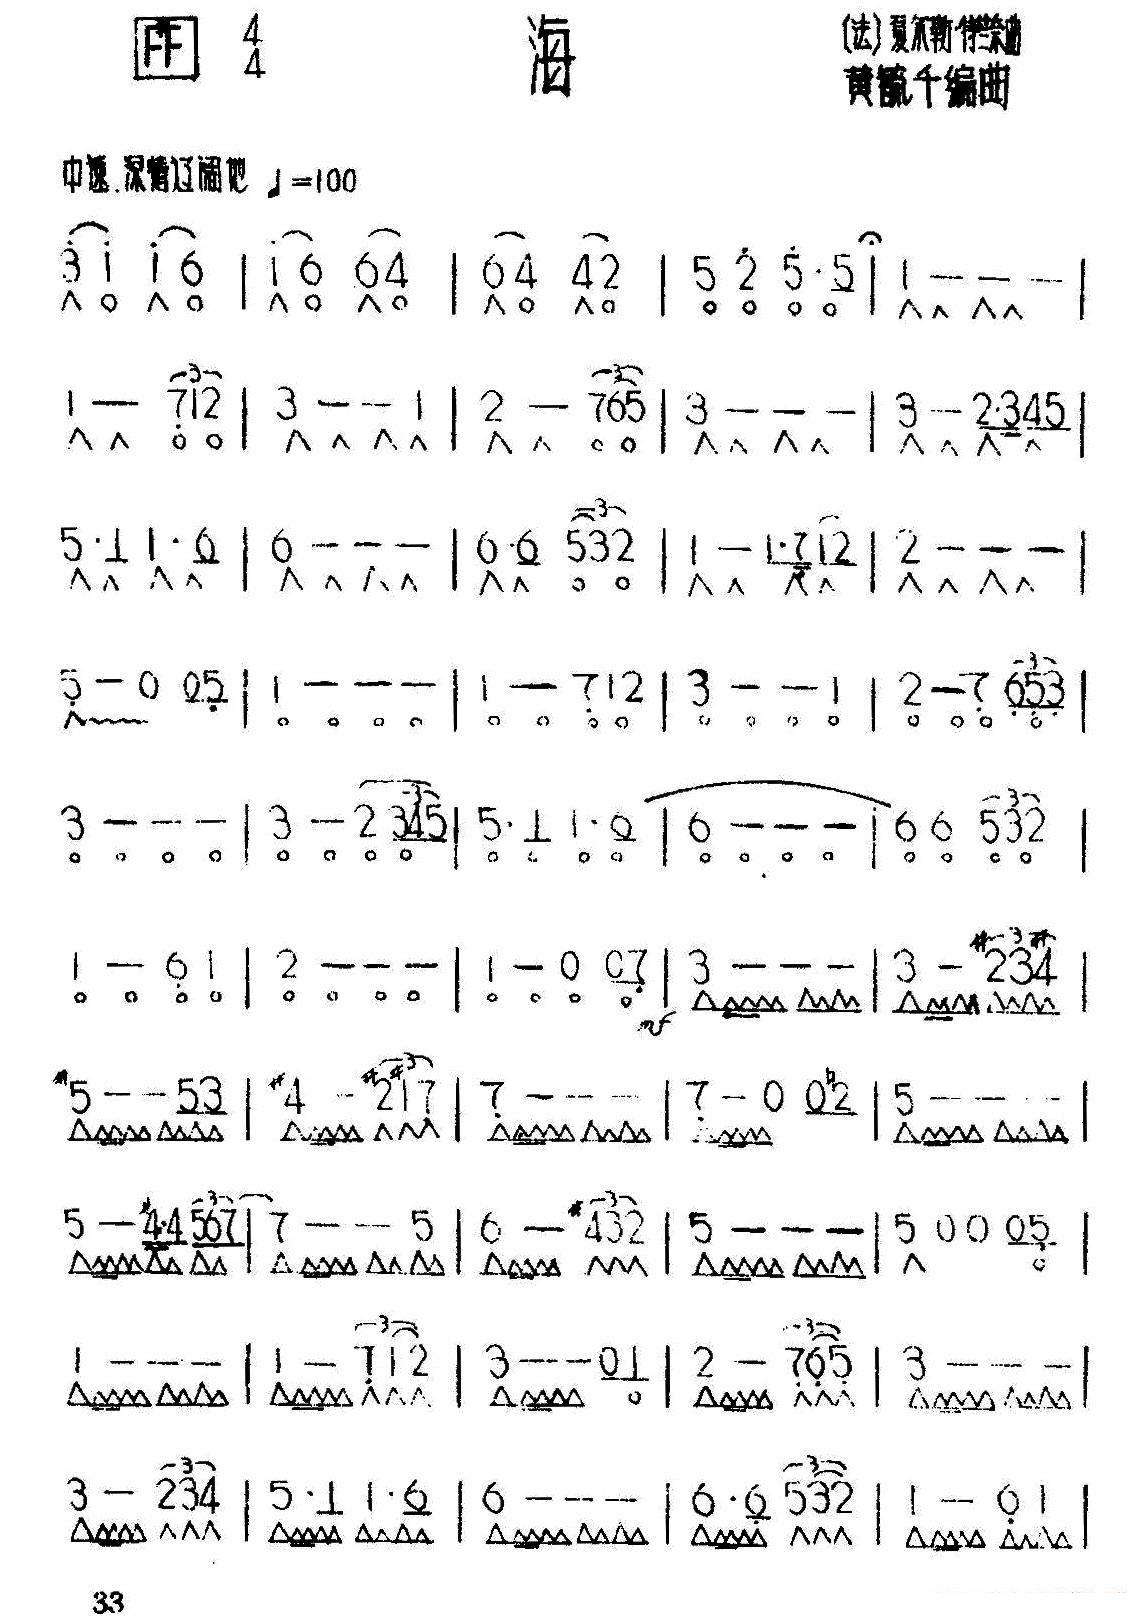 F 4/4
海
(法)夏尔勒·
黄毓千编曲
中速.深情辽阔地 ♩=100
3 1 1 6 | 1 6 6 4 | 6 4 4 2 | 5 2 5 · 5 | 1 — — — |
1 — 7 1 2 | 3 — — 1 | 2 — 7 6 5 | 3 — — — | 3 — 2 · 3 4 5 |
5 · 1 1 · 6 | 6 — — — | 6 · 6 5 3 2 | 1 — 1 · 7 1 2 | 2 — — — |
5 — 0 0 5 | 1 — — — | 1 — 7 1 2 | 3 — — 1 | 2 — 7 6 5 3 |
3 — — — | 3 — 2 3 4 5 | 5 · 1 1 · 6 | 6 — — — | 6 6 5 3 2 |
1 — 6 1 | 2 — — — | 1 — 0 0 7 | 3 — — — | 3 — #2 3 #4 |
mf
#5 — — 5 3 | #4 — #2 #1 7 | 7 — — — | 7 — 0 0 ♮2 | 5 — — — |
5 — #4 · 4 5 6 7 | 7 — — 5 | 6 — #4 3 2 | 5 — — — | 5 0 0 0 5 |
1 — — — | 1 — 7 1 2 | 3 — — 0 1 | 2 — 7 6 5 | 3 — — — |
3 — 2 3 4 | 5 · 1 1 · 6 | 6 — — — | 6 · 6 5 3 2 | 1 — 6 1 |
33